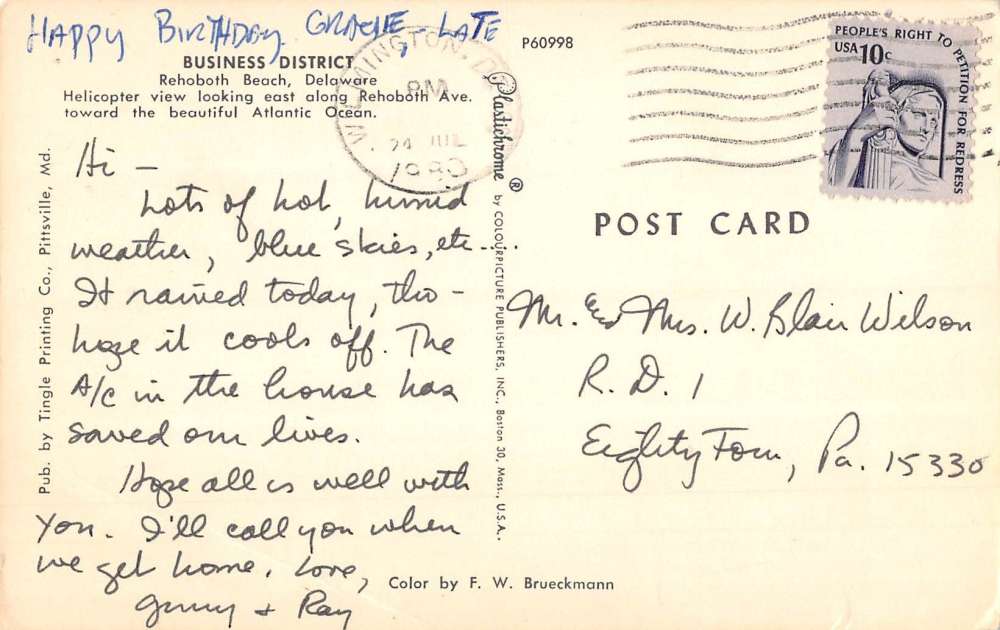 HAPPY BIRTHDAY GRACIE, LATE
BUSINESS DISTRICT
Rehoboth Beach, Delaware
Helicopter view looking east along Rehoboth Ave.
toward the beautiful Atlantic Ocean.
WILMINGTON, D
PM
24 JUL
1980
P60998
PEOPLE'S RIGHT TO PETITION FOR REDRESS
USA 10c
Pub. by Tingle Printing Co., Pittsville, Md.
Hi -
Lots of hot, humid
weather, blue skies, etc....
It rained today, tho -
hope it cools off. The
A/C in the house has
saved our lives.
Hope all is well with
you. I'll call you when
we get home. Love,
Ginny + Ray
Plastichrome ® by COLOURPICTURE PUBLISHERS, INC., Boston 30, Mass., U.S.A.
POST CARD
Mr. and Mrs. W. Blair Wilson
R. D. 1
Eighty Four, Pa. 15330
Color by F. W. Brueckmann